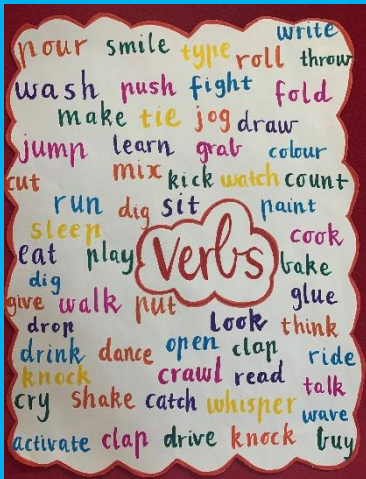 write
pour smile type roll throw
wash push fight fold
make tie jog draw
jump learn grab colour
cut mix kick watch count
run dig sit paint
sleep cook
eat play Verbs bake
dig glue
give walk put
drop look think
drink dance open clap ride
knock crawl read talk
cry shake catch whisper
wave
activate clap drive knock buy